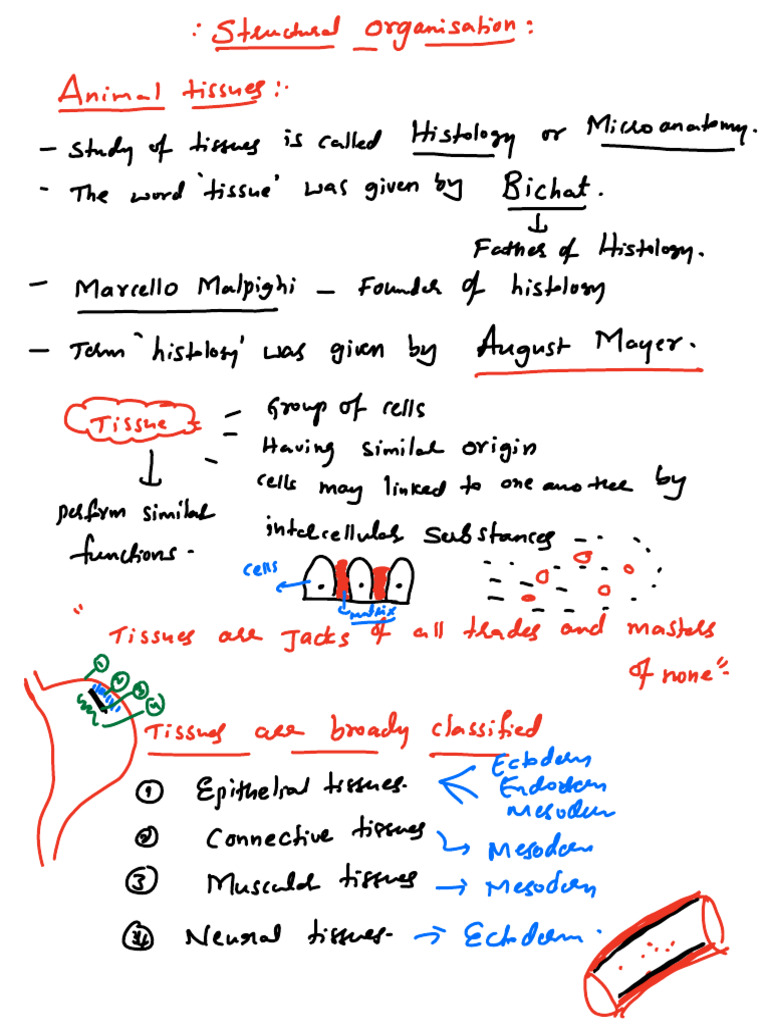 : Structural organisation:
Animal tissues:-
- Study of tissues is called Histology or Microanatomy.
- The word 'tissue' was given by Bichat.
↓
Father of Histology.
- Marcello Malpighi - Founder of histology
- Term "histology' was given by August Mayer.
Tissue - Group of cells
- Having similar origin
- cells may linked to one another by
intercellular substances
↓
perform similar
functions.
cells
matrix
"Tissues are Jacks of all trades and masters
of none"
1
2
3
4
Tissues are broady classified
① Epithelial tissues. Ectoderm
Endoderm
Mesoderm
② Connective tissues → Mesoderm
③ Muscular tissues → Mesoderm
④ Neural tissues. → Ectoderm.